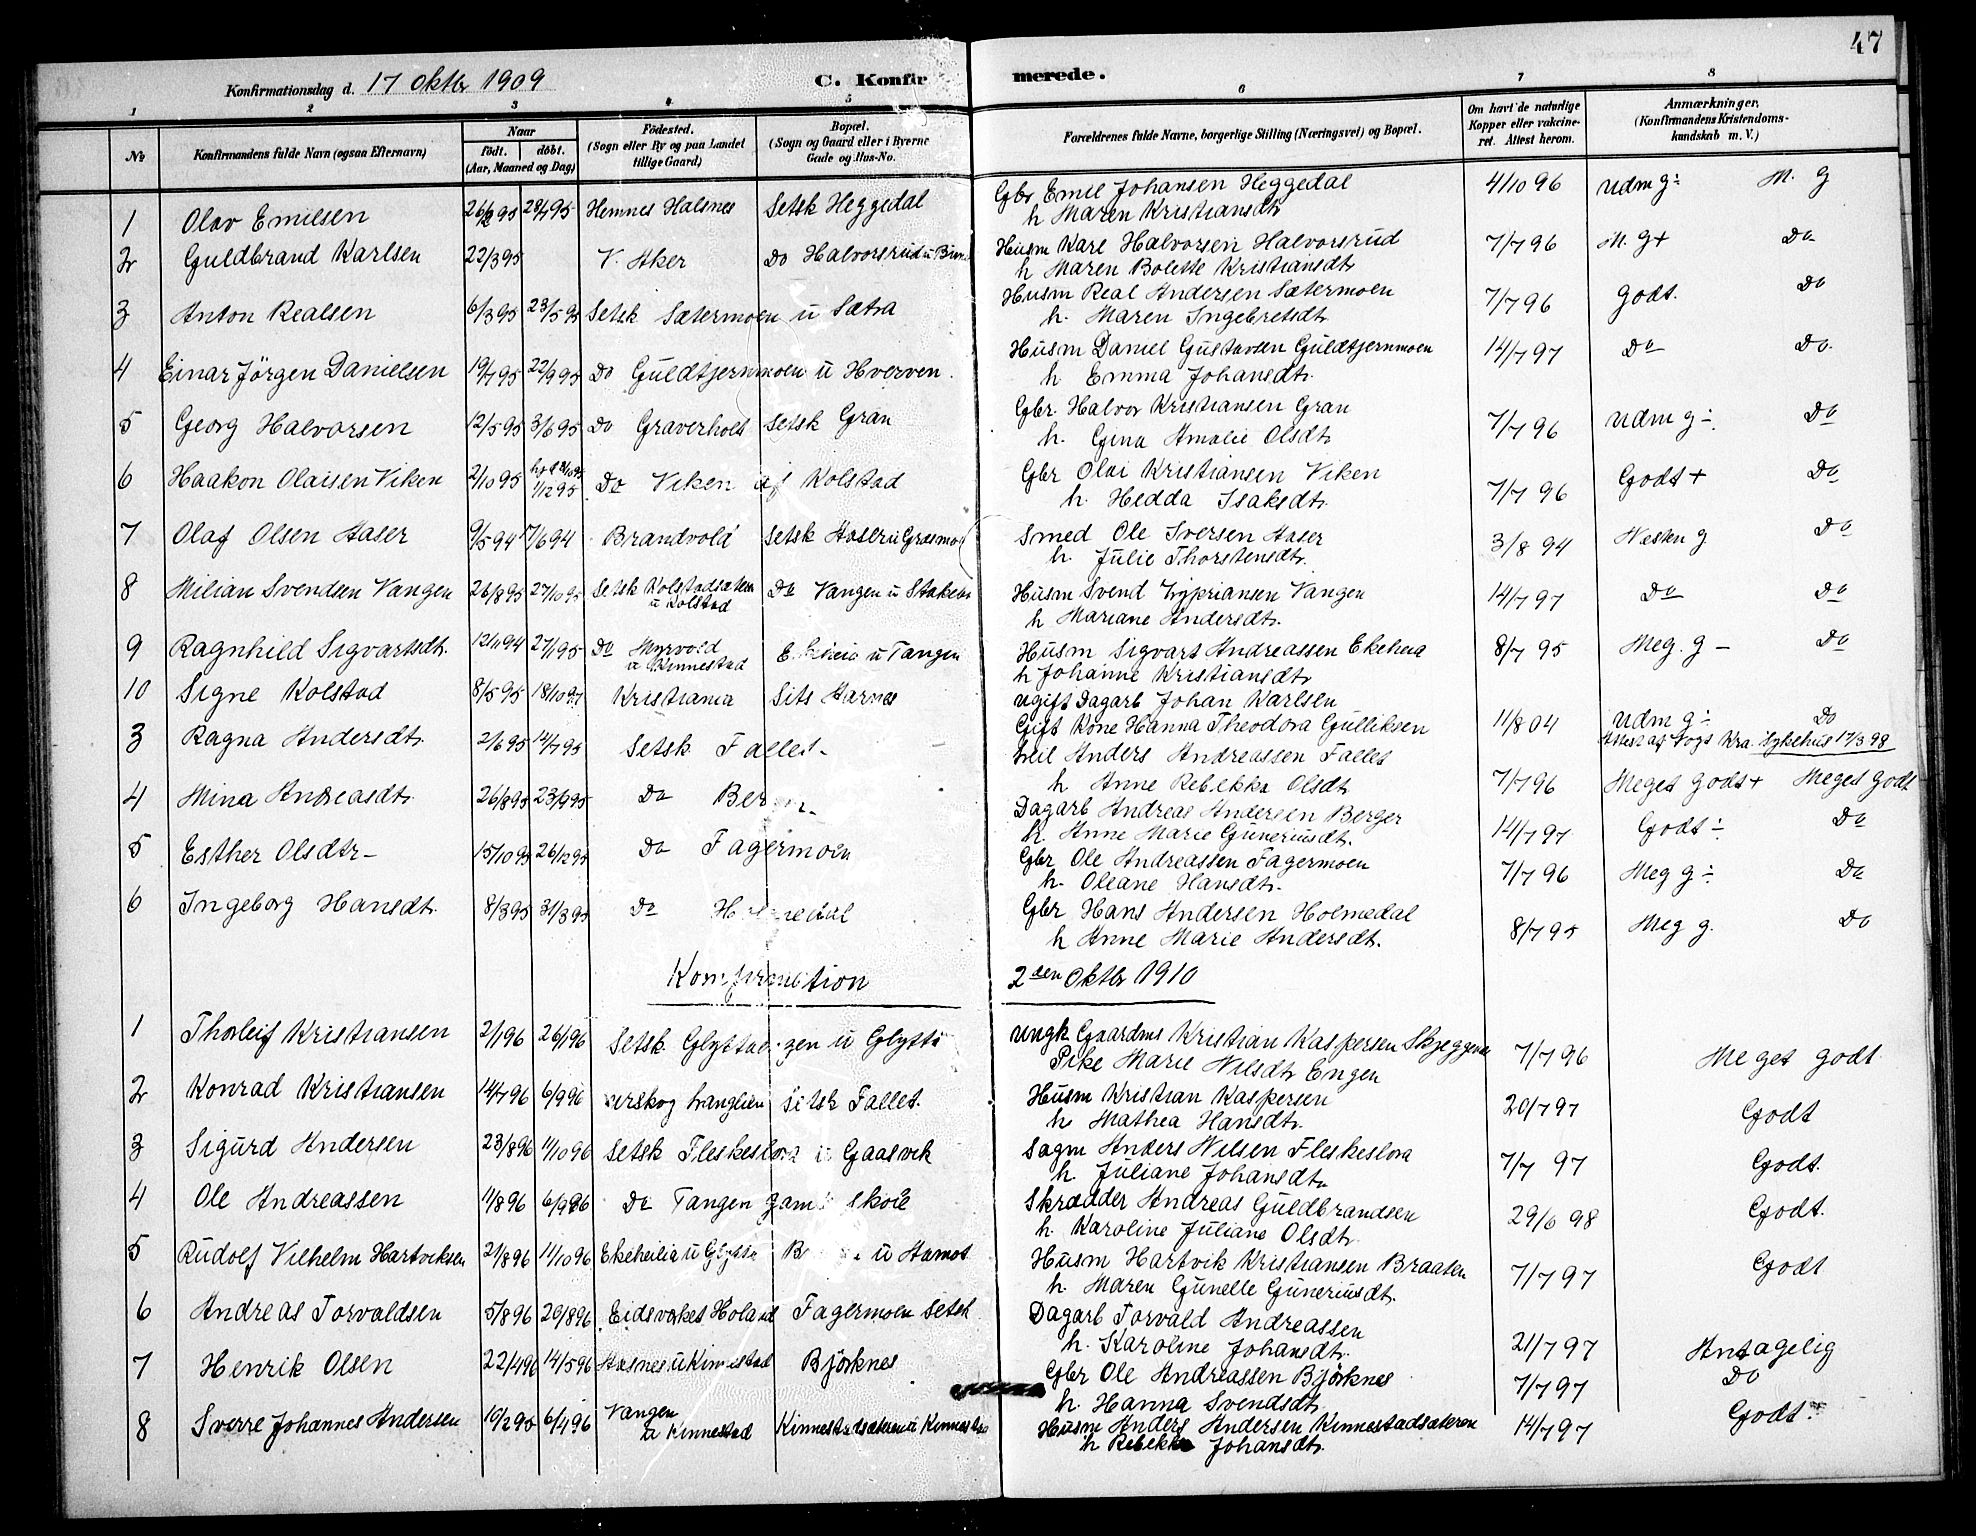 47
Konfirmationsdag d. 17 Oktbr 1909
C. Konfirmerede.
1 2 3 4 5 6 7 8
No
Konfirmandens fulde Navn (ogsaa Efternavn)
Naar
født. døbt.
(Aar, Maaned og Dag)
Fødested.
(Sogn eller By og paa Landet
tillige Gaard)
Bopæl.
(Sogn og Gaard eller i Byerne
Gade og Hus-No.
Forældrenes fulde Navne, borgerlige Stilling (Næringsvei) og Bopæl.
Om havt de naturlige
Kopper eller vakcine-
ret. Attest herom.
Anmærkninger.
(Konfirmandens Kristendoms-
kundskab m. V.)
1 Olav Emilsen Hemnes Halsnes Setsk Heggedal Gbr Emil Johansen Heggedal 4/10 96 Udm g÷ M. g
h Maren Kristiansdtr
2 Guldbrand Karlsen 22/3 95 V. Aker Do Halvorsrud u Husm Karl Halvorsen Halvorsrud 7/7 96 M. g+ Do
h Maren Bolette Kristiansdtr
3 Anton Realsen 6/3 95 23/5 95 Setsk Sætermoen u Sætra Husm Real Andersen Sætermoen 7/7 96 Godt. Do
h. Maren Ingebretsdtr
4 Einar Jörgen Danielsen 19/7 95 22/9 95 Do Guldtjernmoen u Hverven. Husm Daniel Gustavsen Guldtjernmoen 14/7 97 Do Do.
h Emma Johansdtr.
5 Georg Halvorsen 12/5 95 3/6 95 Do Graverholt Setsk Gran Gbr. Halvor Kristiansen Gran 7/7 96 Udm g÷. Do
h. Gina Amalie Olsdtr
6 Haakon Olaisen Viken 2/10 95 1/12 95 Do Viken af Kolstad Gbr Olai Kristiansen Viken 7/7 96 Godt+ Do
h. Hedda Isaksdtr.
7 Olaf Olsen Haser 9/5 94 17/6 94 Brandvold Setsk Haser u Græsmo Smed Ole Iversen Haser 3/8 94 Næsten g Do
h. Julie Thorstensdtr.
8 Milian Svendsen Vangen 26/8 95 27/10 95 Setsk Kolstadsæteren
u Kolstad Do Vangen u Husm Svend Zypriansen Vangen 14/7 97 Do Do
h Mariane Andersdtr.
9 Ragnhild Sigvartsdtr. 12/11 94 27/1 95 Do Myrvold
u Kinnestad u Tangen Husm Sigvart Andreassen Ekeheia 8/7 95 Meg. g – Do
h Johanne Kristiansdtr
10 Signe Kolstad 8/5 95 Kristiania Sits Aarnes ugift Dagarb Johan Karlsen
Gift Kone Hanna Theodora Gulliksen 11/8 04 Udm g÷ Do
Attest af Kra. Sykehus 17/3 98
3 Ragna Andersdtr. 2/6 95 14/7 95 Setsk Fallet. Anders Andreassen Fallet
h Anne Rebekka Olsdtr 7/7 96 Meget godt+ Meget godt
4 Mina Andreasdtr. 26/8 95 23/9 95 Do Dagarb Andreas Andersen Berger
h. Anne Marie Guneriusdtr. 14/7 97 Godt÷ Do
5 Esther Olsdtr– 15/10 95 26/12 95 Do Fagermoen Gbr Ole Andreassen Fagermoen
h. Oleane Hansdtr. 7/7 96 Meg g÷ Do
6 Ingeborg Hansdtr. 8/3 95 31/3 95 Do Holmedal Gbr Hans Andersen Holmedal
h Anne Marie Andersdtr. 8/7 95 Meg g. Do
Konfirmation 2den Oktbr 1910
1 Thorleif Kristiansen 2/1 96 26/1 96 Setsk u Glytti Ungk Gaardms Kristian Kaspersen 7/7 96 Meget godt
Pike Marie Nilsdtr Engen
2 Konrad Kristiansen 14/7 96 6/9 96 Setsk Fallet. Husm Kristian Kaspersen 20/7 97 Godt
h. Mathea Hansdtr.
3 Sigurd Andersen 23/8 96 11/10 96 Setsk Fleskeslora u Gaasvik Sagm Anders Nilsen Fleskeslora 7/7 97 Godt.
h. Juliane Johansdtr
4 Ole Andreassen 11/8 96 6/9 96 Do Tangen skole Skrædder Andreas Guldbrandsen 29/6 98 Godt.
h. Karoline Juliane Olsdtr
5 Rudolf Vilhelm Hartviksen 21/8 96 11/10 96 Ekeheilia u Glytta u Husm Hartvik Kristiansen Braaten 7/7 97 Godt
h. Maren Gunelle Guneriusdtr.
6 Andreas Torvaldsen 5/8 96 20/8 96 Eidsverket Höland Fagermoen Setsk Dagarb Torvald Andreassen
h. Karoline Johansdtr. 21/7 97 Antagelig
7 Henrik Olsen 22/4 96 14/5 96 Aasnes u Kinnestad Björknes Gbr Ole Andreassen Björknes 7/7 97 Do
h. Hanna Svendsdtr.
8 Sverre Johannes Andersen 6/4 96 Vangen
u Kinnestad Kinnestadsæteren u Kinnestad Husm Anders Andersen Kinnestadsæteren 14/7 97 Godt.
h Rebekka Johansdtr.